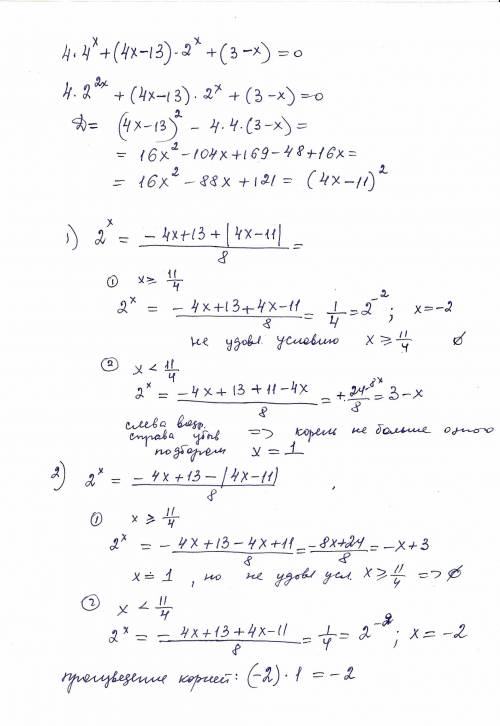 4·4^x + (4x-13)·2^x + (3-x) = 0
4·2^{2x} + (4x-13)·2^x + (3-x) = 0
D = (4x-13)^2 - 4·4·(3-x) =
= 16x^2 - 104x + 169 - 48 + 16x =
= 16x^2 - 88x + 121 = (4x-11)^2
1) 2^x = \frac{-4x+13+|4x-11|}{8} =
① x ≥ \frac{11}{4}
2^x = \frac{-4x+13+4x-11}{8} = \frac{1}{4} = 2^{-2}; x = -2
не удовл. условию x ≥ \frac{11}{4} ∅
② x < \frac{11}{4}
2^x = \frac{-4x+13+11-4x}{8} = + \frac{24-8x}{8} = 3-x
слева возр.
справа убыв => корень не больше одного
подбором x = 1
2) 2^x = \frac{-4x+13-|4x-11|}{8} ,
① x ≥ \frac{11}{4}
2^x = \frac{-4x+13-4x+11}{8} = \frac{-8x+24}{8} = -x+3
x = 1, но не удовл усл. x ≥ \frac{11}{4} => ∅
② x < \frac{11}{4}
2^x = \frac{-4x+13+4x-11}{8} = \frac{1}{4} = 2^{-2}; x = -2
произведение корней: (-2)·1 = -2